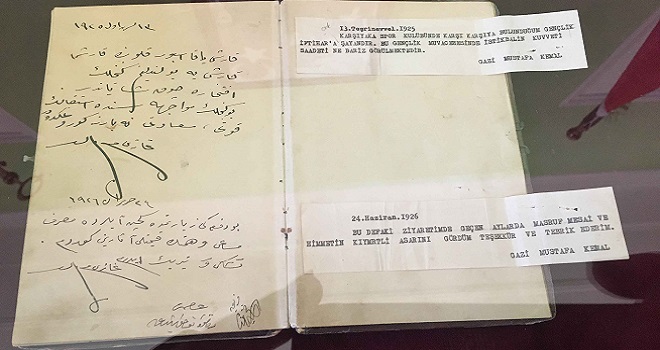 ١٩٢٥
قارشی یاقا سپور قلوبنده قارشی
قارشی یه بولندیغم کنجلك
افتخاره شایاندر بو
کنجلك مواجهه سنده استقبالك
قوتی، سعادتی نه بارز
حزیران ١٩٢٦
بو دفعه کی زیارتمده کچن آیلرده مصروف
مساعی و همتك قیمتلی آثارینی کوردم
تشکر و تبریك ایدرم
13.Teşrinevvel.1925
KARŞIYAKA SPOR KULÜBÜNDE KARŞI KARŞIYA BULUNDUĞUM GENÇLİK
İFTİHAR'A ŞAYANDIR. BU GENÇLİK MUVACEHESİNDE İSTİKBALİN KUVVETİ
SAADETİ NE BARİZ GÖRÜLMEKTEDİR.
GAZİ MUSTAFA KEMAL
24.Haziran.1926
BU DEFAKİ ZİYARETİMDE GEÇEN AYLARDA MASRUF MESAİ VE
HİMMETİN KIYMETLİ ASARINI GÖRDÜM TEŞEKKÜR VE TEBRİK EDERİM.
GAZİ MUSTAFA KEMAL